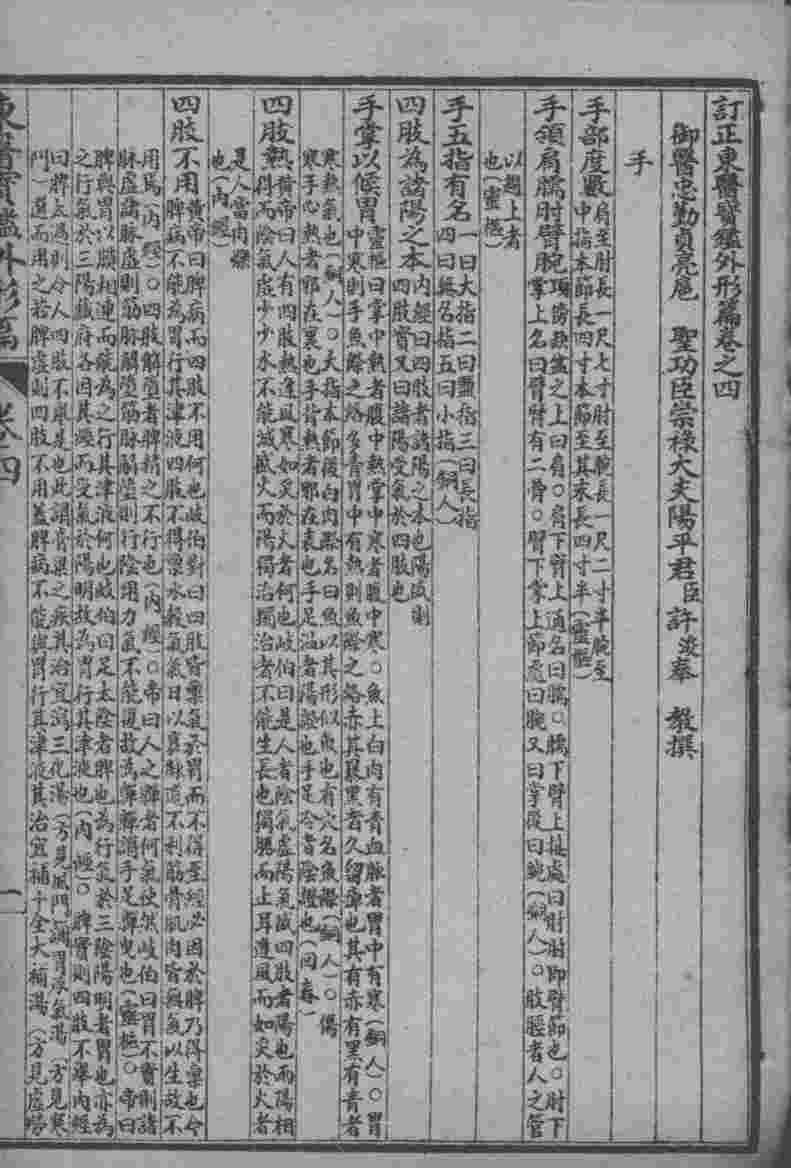 訂正東醫寶鑑外形篇卷之四
御醫忠勤貞亮扈 聖功臣崇祿大夫陽平君臣許浚奉 敎撰
手
手部度數 肩至肘長一尺七寸肘至腕長一尺二寸半腕至
中指本節長四寸本節至其末長四寸半(靈樞)
手領肩臑肘臂腕 項傍缺盆之上曰肩○肩下臂上通名曰臑○臑下臂上接處曰肘肘即臂節也○肘下
掌上名曰臂臂有二骨○臂下掌上節處曰腕又曰掌後曰腕(銅人)○肢脛者人之管
以趨上者
也(靈樞)
手五指有名 一曰大指二曰鹽指三曰長指
四曰無名指五曰小指(銅人)
四肢為諸陽之本 內經曰四肢者諸陽之本也陽盛則
四肢實又曰諸陽受氣於四肢也
手掌以候胃 靈樞曰掌中熱者腹中熱掌中寒者腹中寒○魚上白肉有青血脉者胃中有寒(銅人)○胃
中寒則手魚際之絡多青胃中有熱則魚際之絡赤其暴黑者久留痺也其有赤有黑有青者
寒熱氣也(銅人)○大指本節後白肉際名曰魚以其形似魚也有穴名魚際(銅人)○傷
寒手心熱者邪在裏也手背熱者邪在表也手足溫者陽證也手足冷者陰證也(回春)
四肢熱 黃帝曰人有四肢熱逢風寒如炙於火者何也岐伯曰是人者陰氣虛陽氣盛四肢者陽也兩陽相
得而陰氣虛少少水不能滅盛火而陽獨治獨治者不能生長也獨勝而止耳逢風而如炙於火者
是人當肉爍
也(內經)
四肢不用 黃帝曰脾病而四肢不用何也岐伯對曰四肢皆稟氣於胃而不得至經必因於脾乃得稟也今
脾病不能為胃行其津液四肢不得稟水穀氣氣日以衰脉道不利筋骨肌肉皆無氣以生故不
用焉(內經)○四肢解墮者脾精之不行也(內經)○帝曰人之嚲者何氣使然岐伯曰胃不實則諸
脉虛諸脉虛則筋脉解墮筋脉解墮則行陰用力氣不能復故為嚲嚲謂手足嚲曳也(靈樞)○帝曰
脾與胃以膜相連而能為之行其津液何也岐伯曰足太陰者脾也為行氣於三陰陽明者胃也亦為
之行氣於三陽臟府各因其經而受氣於陽明故為胃行其津液也(內經)○脾實則四肢不擧內經
曰脾太過則令人四肢不擧是也此謂膏粱之疾其治宜瀉三化湯(方見風門)調胃承氣湯(方見寒
門)選而用之若脾虛則四肢不用盖脾病不能與胃行其津液其治宜補十全大補湯(方見虛勞
東醫寶鑑外形篇 卷四 一